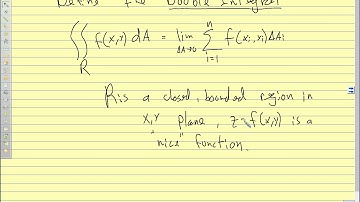 Define the Double Integral
∬_R f(x,y) dA = lim_{ΔA→0} Σ_{i=1}^{n} f(x_i, y_i) ΔA_i
R is a closed, bounded region in
x,y plane, z=f(x,y) is a
"nice" function.